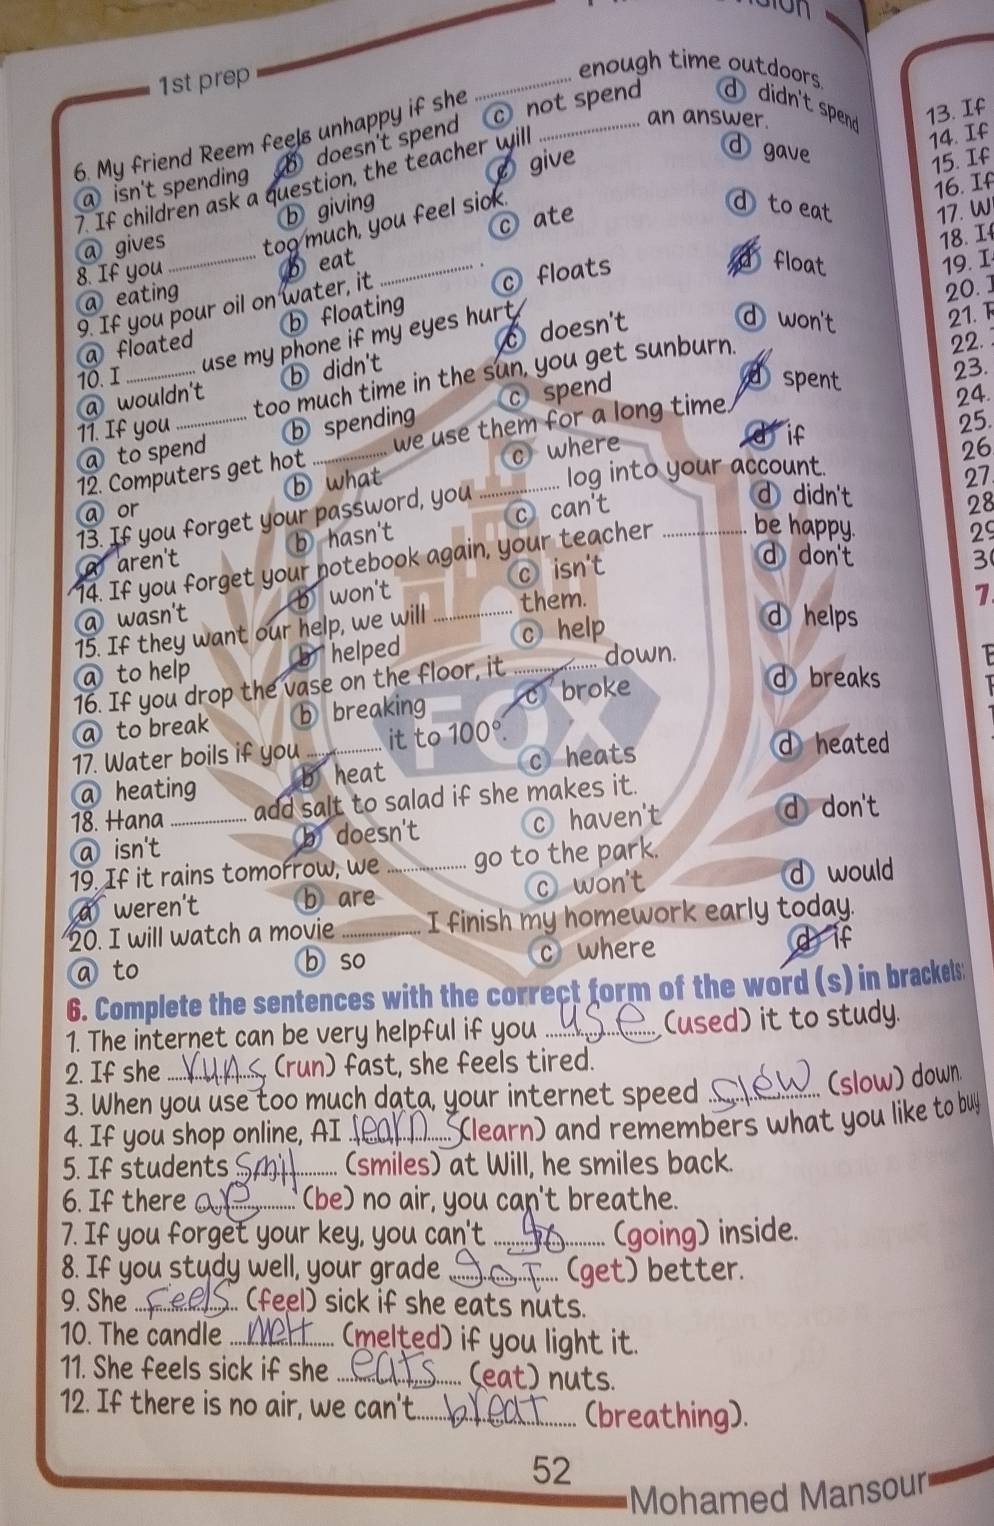 1st prep
6. My friend Reem feels unhappy if she ............ enough time outdoors.
a isn't spending b doesn't spend c not spend d didn't spend
7. If children ask a question, the teacher will ............ an answer.
a gives b giving c give d gave
8. If you ............ too much, you feel sick.
a eating b eat c ate d to eat
9. If you pour oil on water, it ............ .
a floated b floating c floats d float
10. I ............ use my phone if my eyes hurt.
a wouldn't b didn't c doesn't d won't
11. If you ............ too much time in the sun, you get sunburn.
a to spend b spending c spend d spent
12. Computers get hot ............ we use them for a long time.
a or b what c where d if
13. If you forget your password, you ............ log into your account.
a aren't b hasn't c can't d didn't
14. If you forget your notebook again, your teacher ............ be happy.
a wasn't b won't c isn't d don't
15. If they want our help, we will ............ them.
a to help b helped c help d helps
16. If you drop the vase on the floor, it ............ down.
a to break b breaking c broke d breaks
17. Water boils if you ............ it to 100°.
a heating b heat c heats d heated
18. Hana ............ add salt to salad if she makes it.
a isn't b doesn't c haven't d don't
19. If it rains tomorrow, we ............ go to the park.
a weren't b are c won't d would
20. I will watch a movie ............ I finish my homework early today.
a to b so c where d if
6. Complete the sentences with the correct form of the word (s) in brackets:
1. The internet can be very helpful if you use (used) it to study.
2. If she runs (run) fast, she feels tired.
3. When you use too much data, your internet speed slow (slow) down.
4. If you shop online, AI learns (learn) and remembers what you like to buy
5. If students smil (smiles) at Will, he smiles back.
6. If there are (be) no air, you can't breathe.
7. If you forget your key, you can't go (going) inside.
8. If you study well, your grade got (get) better.
9. She feels (feel) sick if she eats nuts.
10. The candle melt (melted) if you light it.
11. She feels sick if she eats (eat) nuts.
12. If there is no air, we can't breat (breathing).
52
Mohamed Mansour
13. If
14. If
15. If
16. If
17. W
18. If
19. I
20.
21.
22.
23.
24.
25.
26
27.
28
29
7.